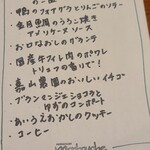 鴨のフォアグラとりんごのソテー
金目鯛のうろこ焼き
アメリケーヌソース
お口なおしのグラニテ
国産牛フィレ肉のポワレ
トリュフの香りで!
嘉山農園のおいしいイチゴ
ブラウニミンミショコラと
ゆずのコンポート
あいうえおかしのクッキー
コーヒー